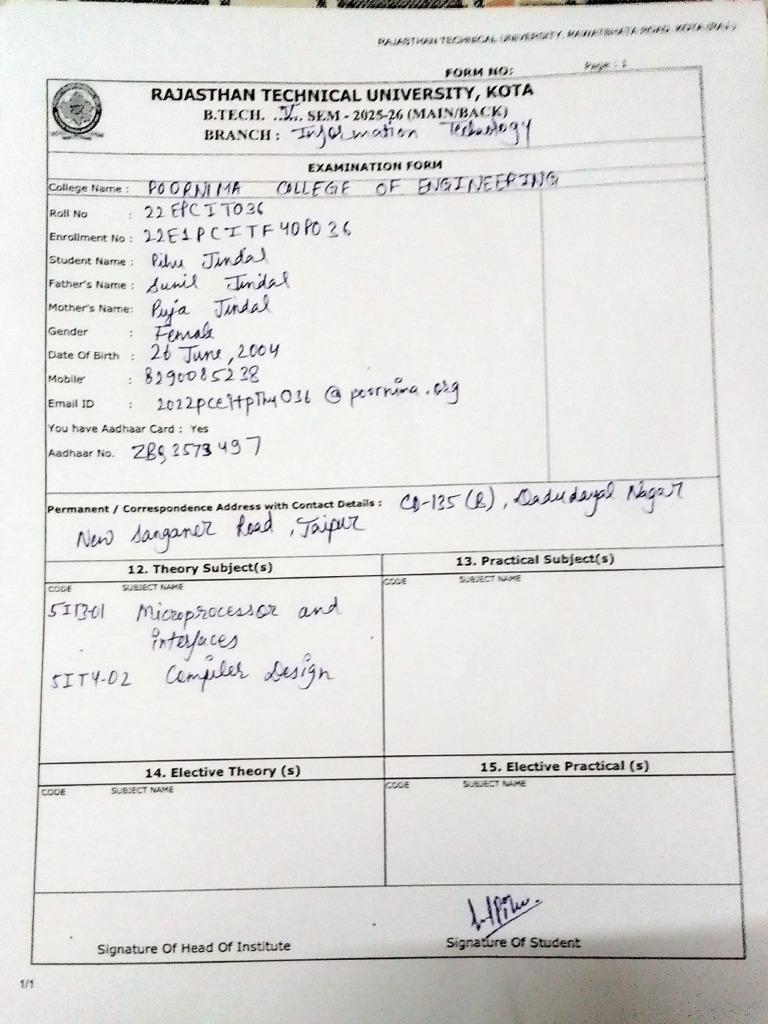 RAJASTHAN TECHNICAL UNIVERSITY, RAWATBHATA ROAD, KOTA (RAJ.)
FORM NO: Page : 1
RAJASTHAN TECHNICAL UNIVERSITY, KOTA
B.TECH. ..V.. SEM - 2025-26 (MAIN/BACK)
BRANCH : Information Technology
EXAMINATION FORM
College Name : POORNIMA COLLEGE OF ENGINEERING
Roll No : 22EPCIT036
Enrollment No : 22E1PCITF40P036
Student Name : Pihu Jindal
Father's Name : Sunil Jindal
Mother's Name: Puja Jindal
Gender : Female
Date Of Birth : 26 June, 2004
Mobile : 8290085238
Email ID : @poornima.org
You have Aadhaar Card : Yes
Aadhaar No.
Permanent / Correspondence Address with Contact Details : Dadudayal Nagar
New Sanganer Road, Jaipur
12. Theory Subject(s) 13. Practical Subject(s)
CODE SUBJECT NAME CODE SUBJECT NAME
5IT3-01 Microprocessor and
interfaces
5IT4-02 Compiler Design
14. Elective Theory (s) 15. Elective Practical (s)
CODE SUBJECT NAME CODE SUBJECT NAME
Signature Of Head Of Institute Signature Of Student
1/1